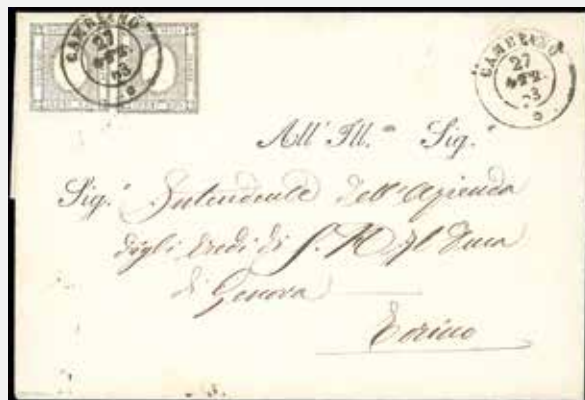 CAMERINO
27
63
CAMERINO
27
63
All' Ill.mo Sig.r
Sig.r Intendente dell'Azienda
degli Eredi di S. M. Il Duca
di Genova
Torino